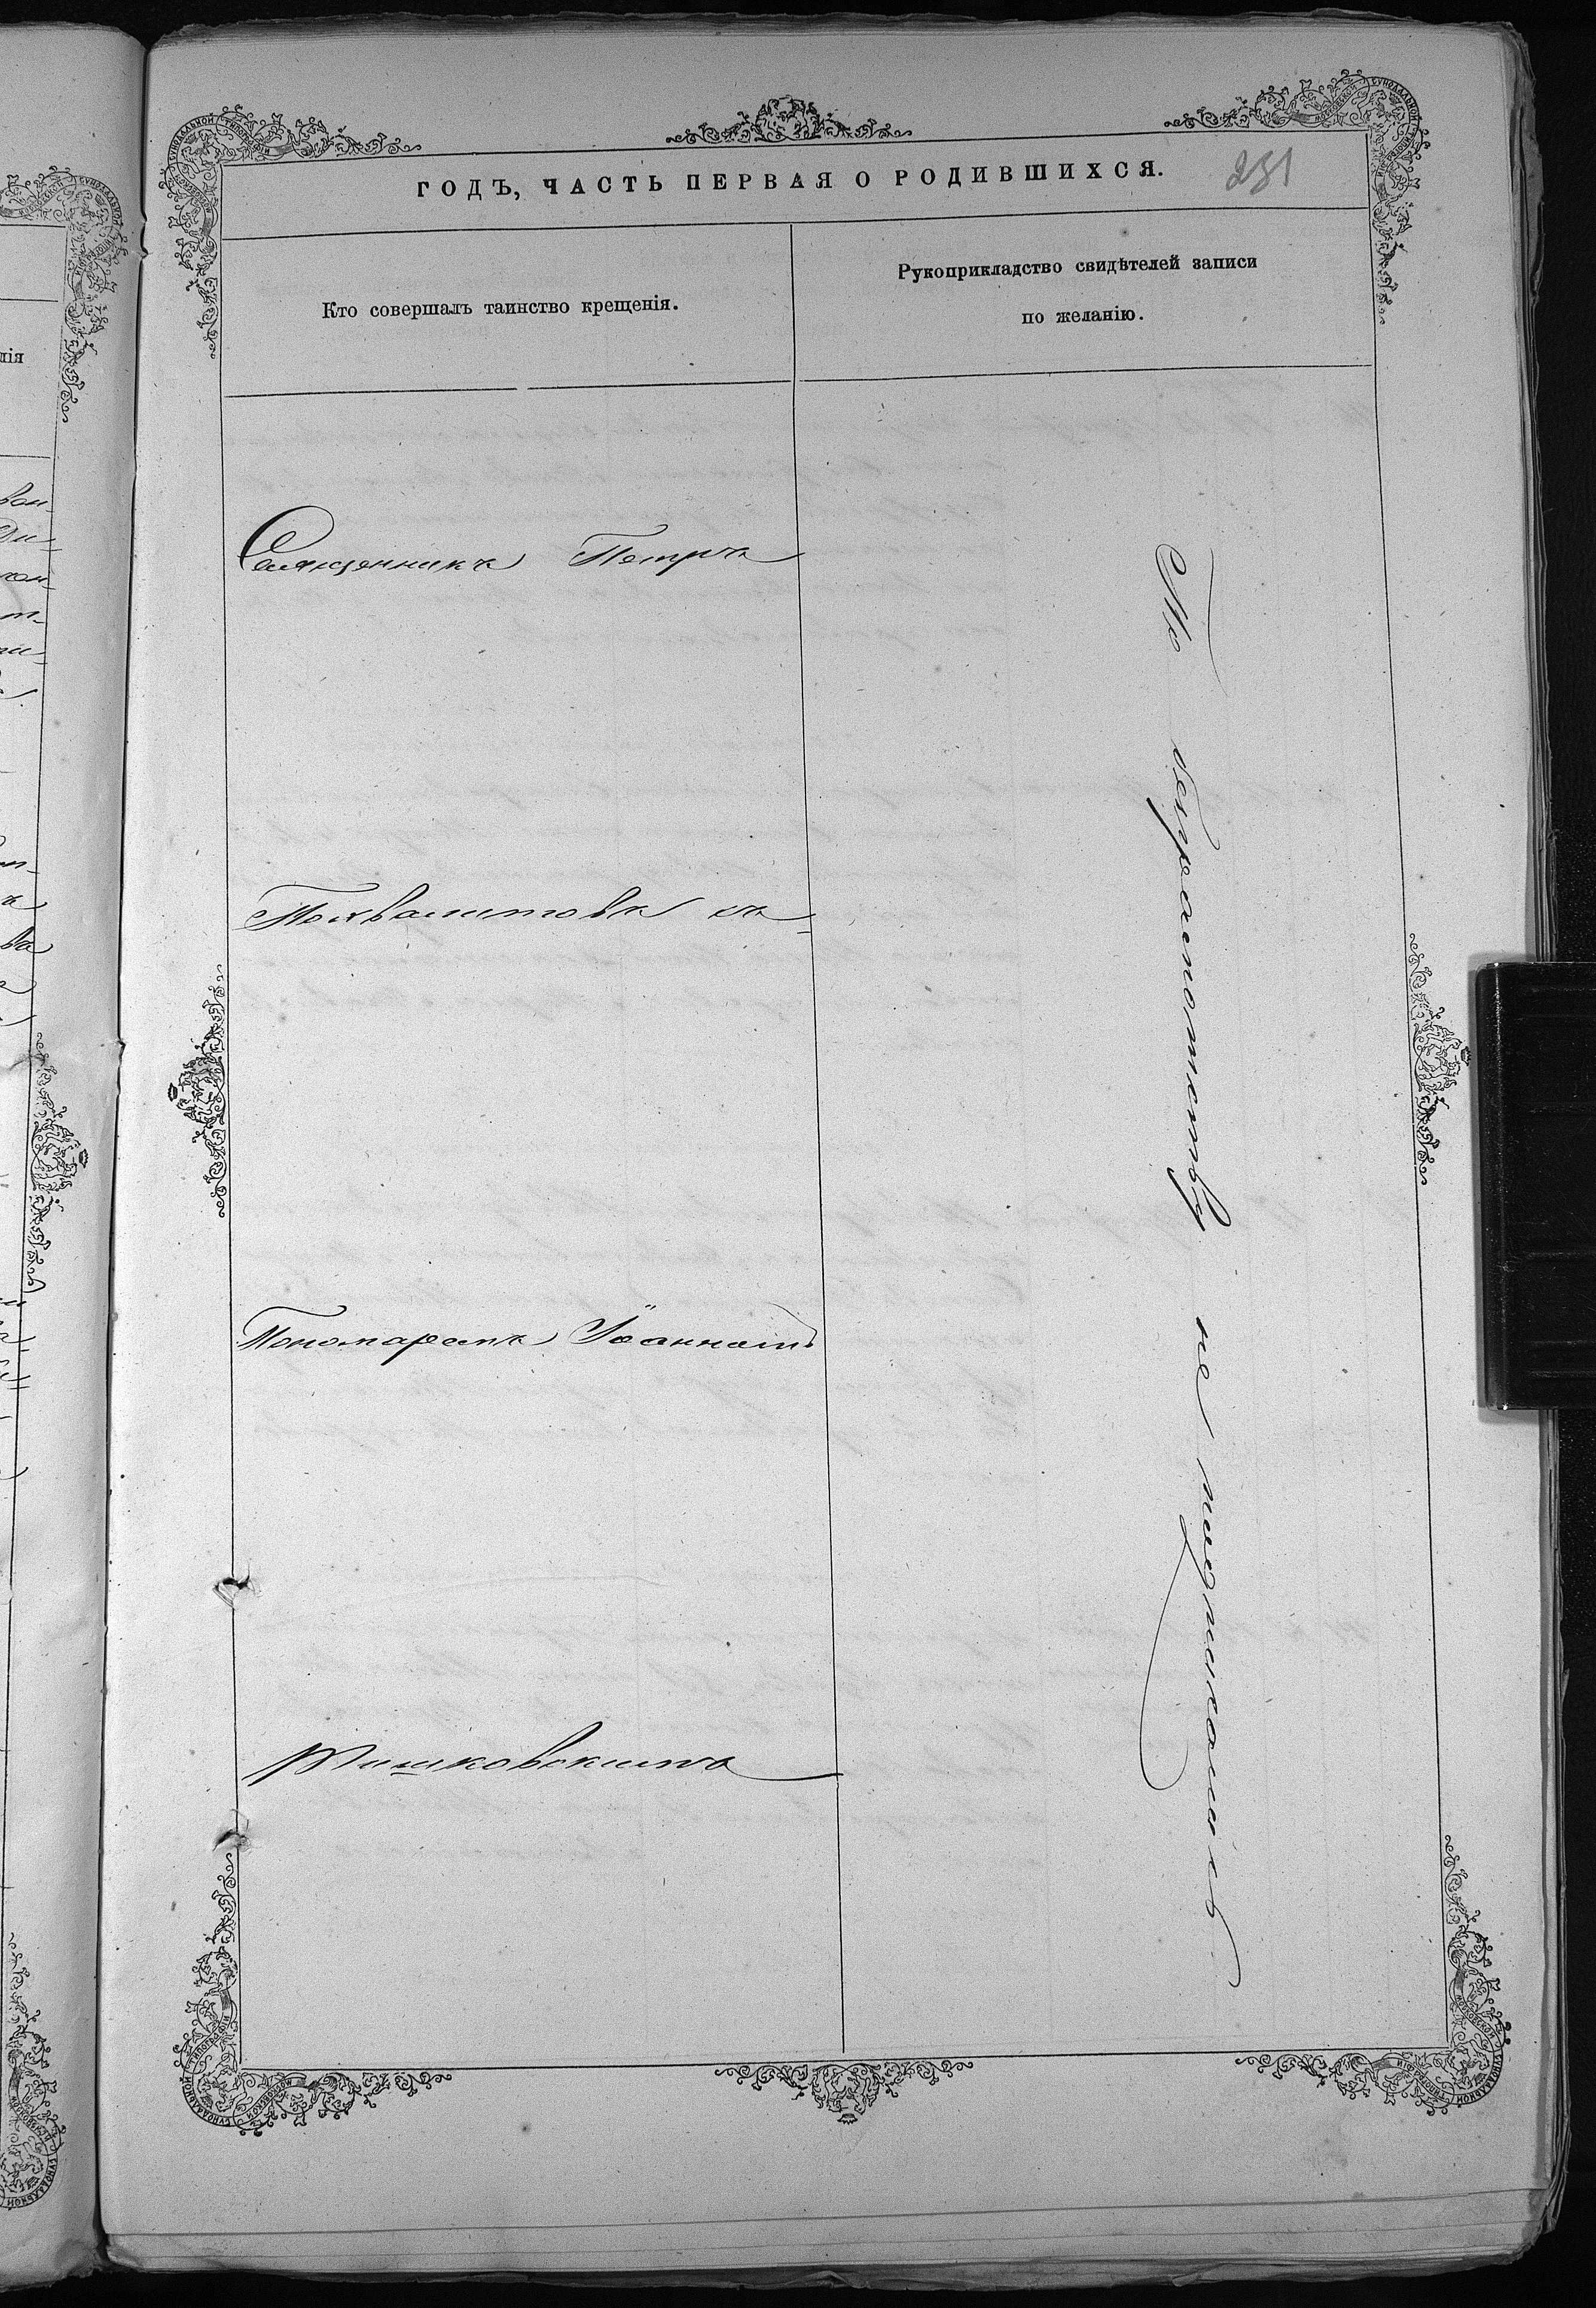 ГОДЪ, ЧАСТЬ ПЕРВАЯ О РОДИВШИХСЯ.
231
Кто совершалъ таинство крещенія.
Рукоприкладство свидѣтелей записи
по желанію.
Священникъ Петръ
Похвалитовъ съ
Пономаремъ Іоанномъ
Тишковскимъ
По безграмотству не подписались